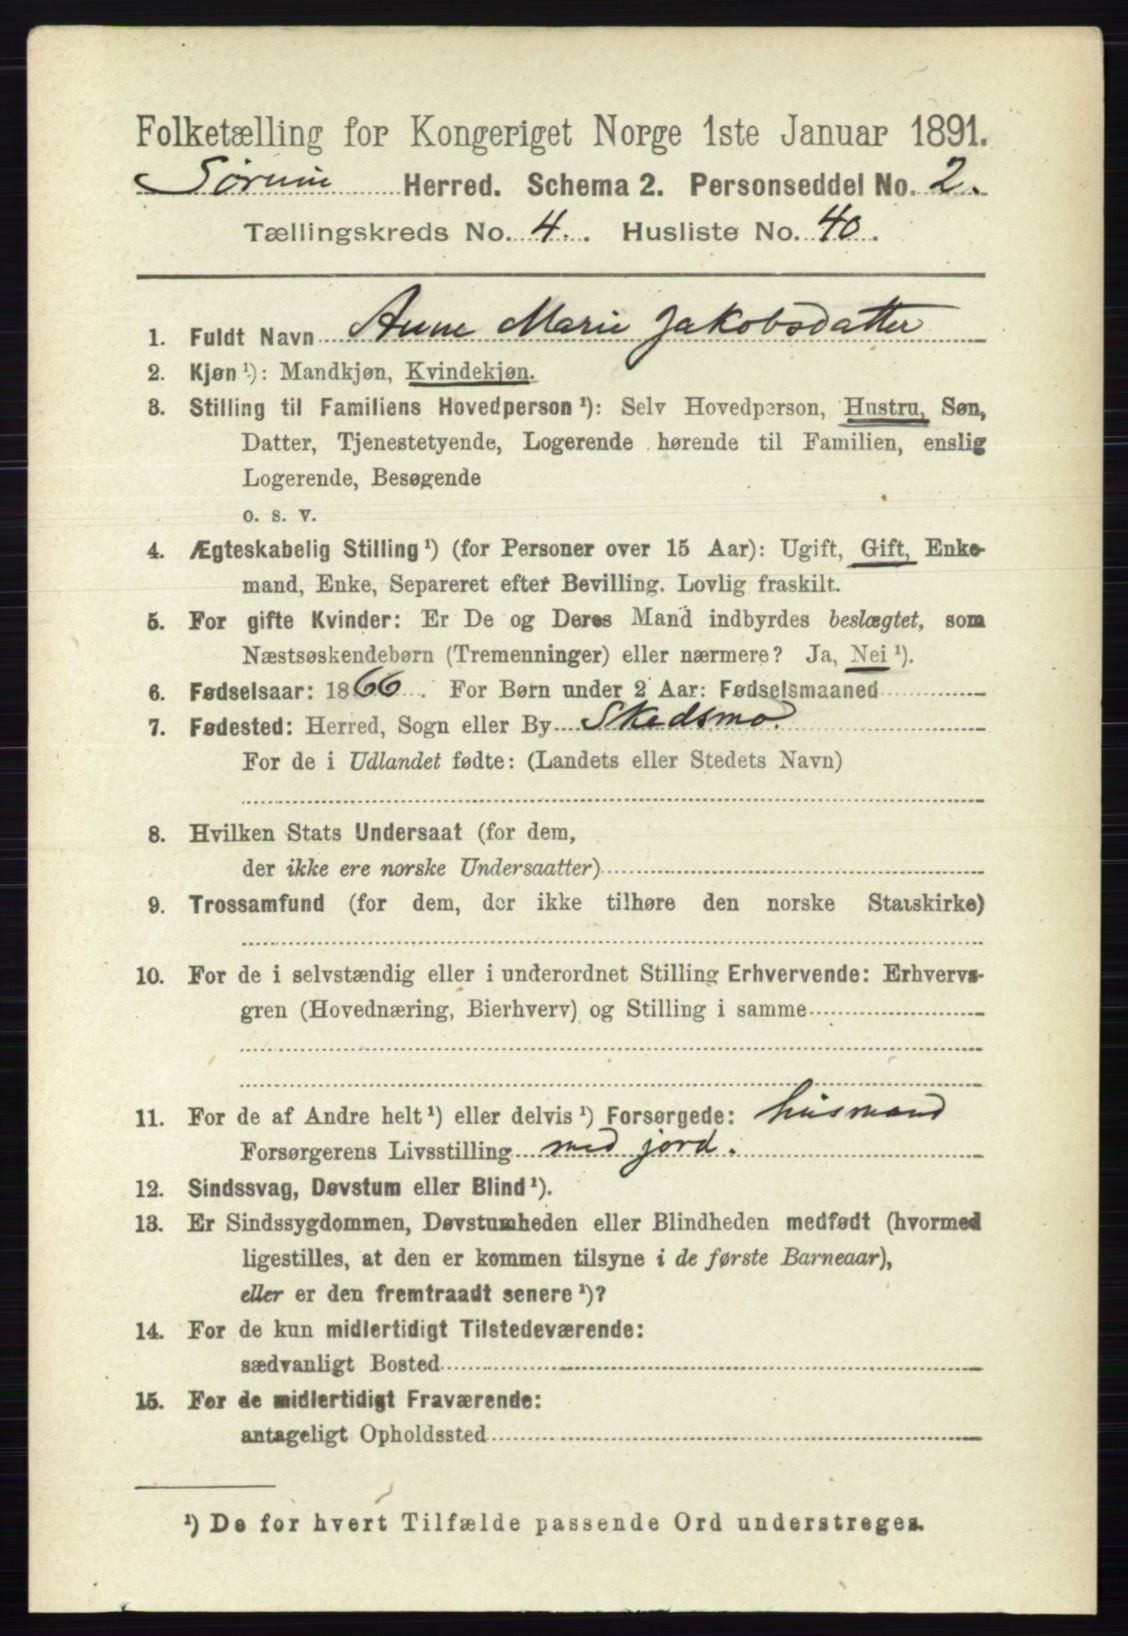 Folketælling for Kongeriget Norge 1ste Januar 1891.
Sørum Herred. Schema 2. Personseddel No. 2.
Tællingskreds No. 4. Husliste No. 40.
1. Fuldt Navn Anne Marie Jakobsdatter
2. Kjøn ¹): Mandkjøn, Kvindekjøn.
3. Stilling til Familiens Hovedperson ¹): Selv Hovedperson, Hustru, Søn,
Datter, Tjenestetyende, Logerende hørende til Familien, enslig
Logerende, Besøgende
o. s. v.
4. Ægteskabelig Stilling ¹) (for Personer over 15 Aar): Ugift, Gift, Enke-
mand, Enke, Separeret efter Bevilling. Lovlig fraskilt.
5. For gifte Kvinder: Er De og Deres Mand indbyrdes beslægtet, som
Næstsøskendebørn (Tremenninger) eller nærmere? Ja, Nei ¹).
6. Fødselsaar: 1866. For Børn under 2 Aar: Fødselsmaaned
7. Fødested: Herred, Sogn eller By Skedsmo.
For de i Udlandet fødte: (Landets eller Stedets Navn)
8. Hvilken Stats Undersaat (for dem,
der ikke ere norske Undersaatter)
9. Trossamfund (for dem, der ikke tilhøre den norske Statskirke)
10. For de i selvstændig eller i underordnet Stilling Erhvervende: Erhvervs-
gren (Hovednæring, Bierhverv) og Stilling i samme
11. For de af Andre helt ¹) eller delvis ¹) Forsørgede: husmand
Forsørgerens Livsstilling med jord.
12. Sindssvag, Døvstum eller Blind ¹).
13. Er Sindssygdommen, Døvstumheden eller Blindheden medfødt (hvormed
ligestilles, at den er kommen tilsyne i de første Barneaar),
eller er den fremtraadt senere ¹)?
14. For de kun midlertidigt Tilstedeværende:
sædvanligt Bosted
15. For de midlertidigt Fraværende:
antageligt Opholdssted
¹) De for hvert Tilfælde passende Ord understreges.